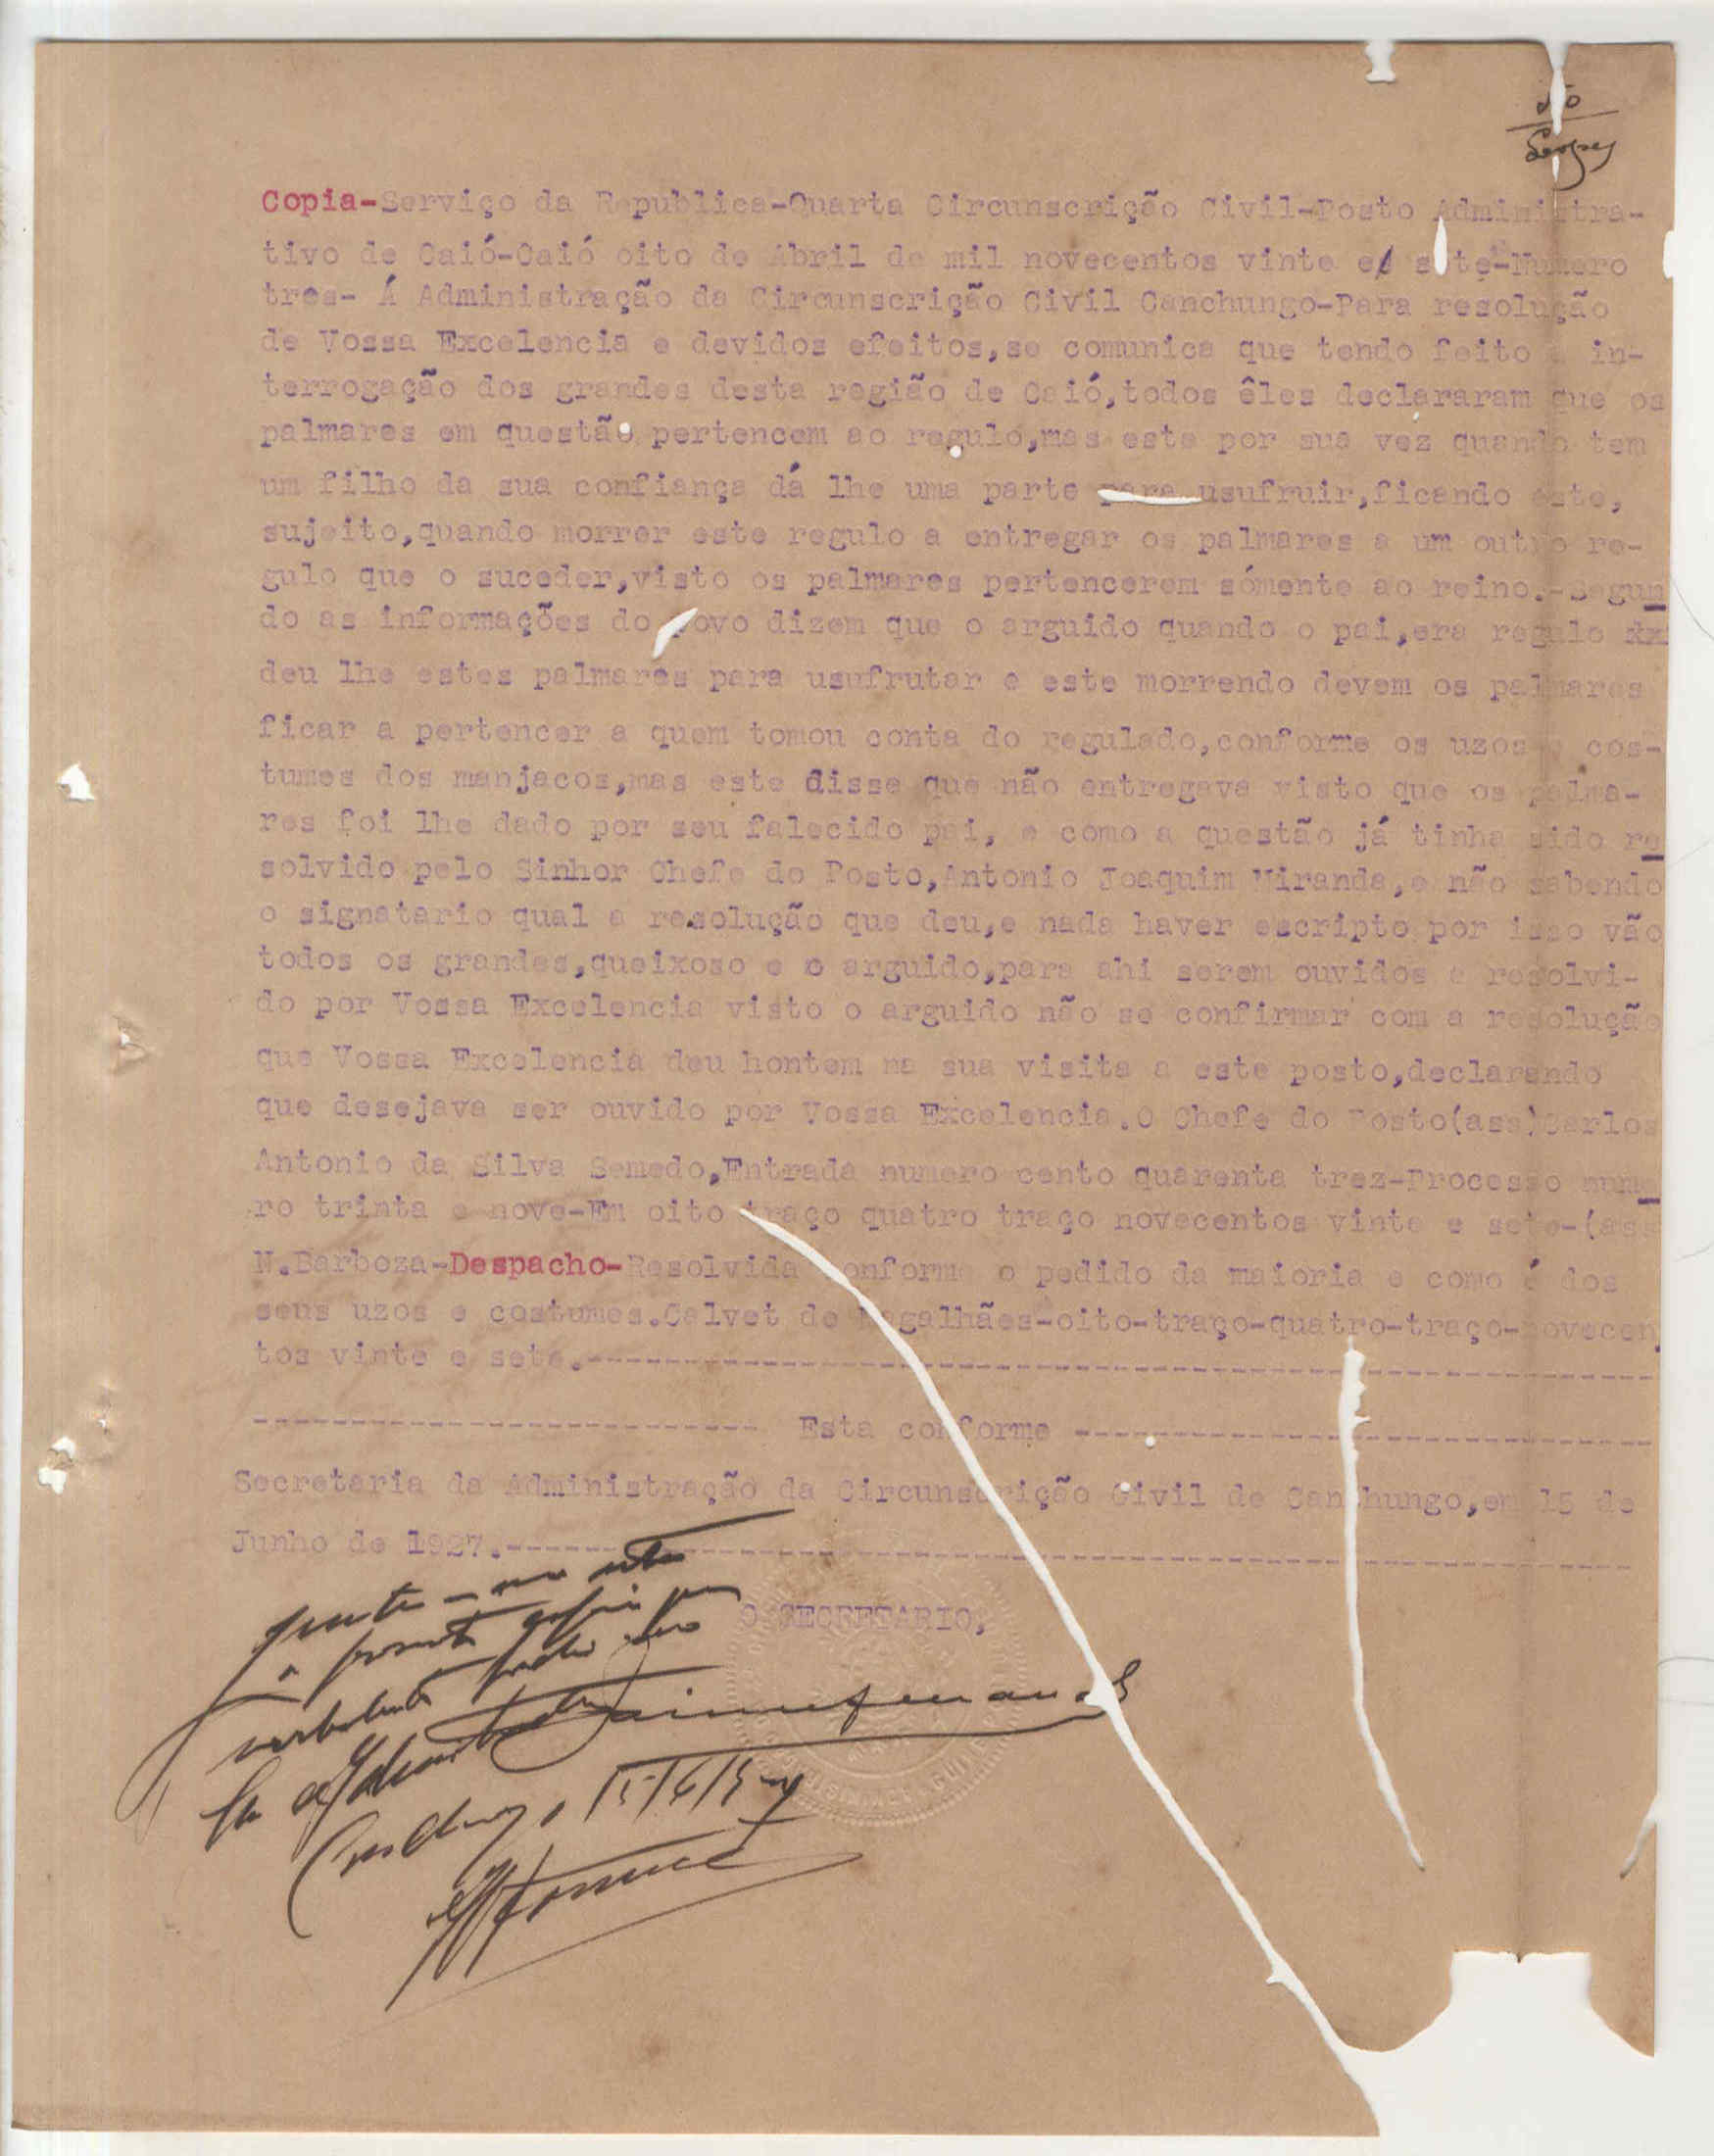 Copia-Serviço da Republica-Quarta Circunscrição Civil-Posto Administra-
tivo de Caió-Caió oito de Abril de mil novecentos vinte e sete-Numero
tres- Á Administração da Circunscrição Civil Canchungo-Para resolução
de Vossa Excelencia e devidos efeitos,se comunica que tendo feito a in-
terrogação dos grandes desta região de Caió,todos êles declararam que os
palmares em questão pertencem ao regulo,mas este por sua vez quando tem
um filho da sua confiança dá lhe uma parte para usufruir,ficando este,
sujeito,quando morrer este regulo a entregar os palmares a um outro re-
gulo que o suceder,visto os palmares pertencerem sómente ao reino.-Segun
do as informações do povo dizem que o arguido quando o pai,era regulo
deu lhe estes palmares para usufrutar e este morrendo devem os palmares
ficar a pertencer a quem tomou conta do regulado,conforme os uzos e cos-
tumes dos manjacos,mas este disse que não entregava visto que os palma-
res foi lhe dado por seu falecido pai, e como a questão já tinha sido re
solvido pelo Sinhor Chefe do Posto,Antonio Joaquim Miranda,e não sabendo
o signatario qual a resolução que deu,e nada haver escripto por isso vão
todos os grandes,queixoso e o arguido,para ahi serem ouvidos e resolvi-
do por Vossa Excelencia visto o arguido não se confirmar com a resolução
que Vossa Excelencia deu hontem na sua visita a este posto,declarando
que desejava ser ouvido por Vossa Excelencia.O Chefe do Posto(ass)Carlos
Antonio da Silva Semedo,Entrada numero cento quarenta trez-Processo nume
ro trinta e nove-Em oito traço quatro traço novecentos vinte e sete-(ass
N.Barboza-Despacho-Resolvida conforme o pedido da maioria e como é dos
seus uzos e costumes.Calvet de Magalhães-oito-traço-quatro-traço-novecen
tos vinte e sete.-----------------------------------------------
-------------------------- Esta conforme ------------------------------
Secretaria da Administração da Circunscrição Civil de Canchungo,em 15 de
Junho de 1927.----------------------------------------------------------
O SECRETARIO,